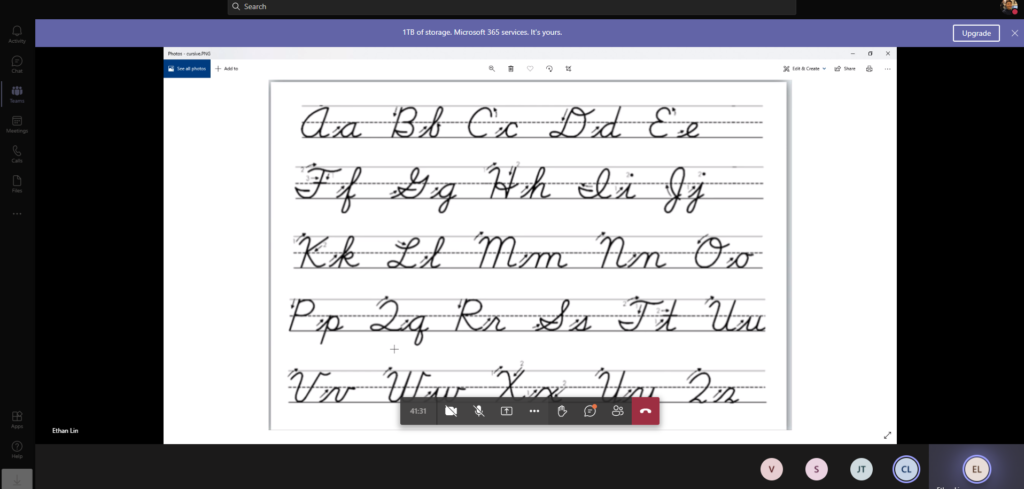 Search
1TB of storage. Microsoft 365 services. It's yours.
Upgrade
Activity
Chat
Teams
Meetings
Calls
Files
Apps
Help
Photos - cursive.PNG
See all photos
Add to
Edit & Create
Share
Aa Bb Cc Dd Ee
Ff Gg Hh Ii Jj
Kk Ll Mm Nn Oo
Pp Qq Rr Ss Tt Uu
Vv Ww Xx Yy Zz
41:31
Ethan Lin
V
S
JT
CL
EL